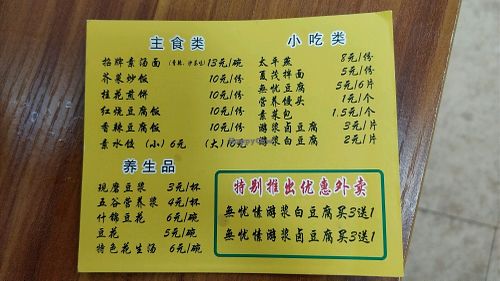 主食类
招牌素汤面 (香辣、沙茶味) 13元/碗
芥菜炒饭 10元/份
桂花煎饼 10元/份
红烧豆腐饭 10元/份
香辣豆腐饭 10元/份
素水饺 (小) 6元 (大) 10元
养生品
现磨豆浆 3元/杯
五谷营养浆 4元/杯
什锦豆花 6元/碗
豆花 5元/碗
特色花生汤 6元/碗
小吃类
太平燕 8元/份
夏茂拌面 5元/份
無忧豆腐 5元/6片
营养馒头 1元/个
素菜包 1.5元/个
游浆卤豆腐 3元/片
游浆白豆腐 2元/片
特别推出优惠外卖
無忧愫游浆白豆腐买3送1
無忧愫游浆卤豆腐买3送1